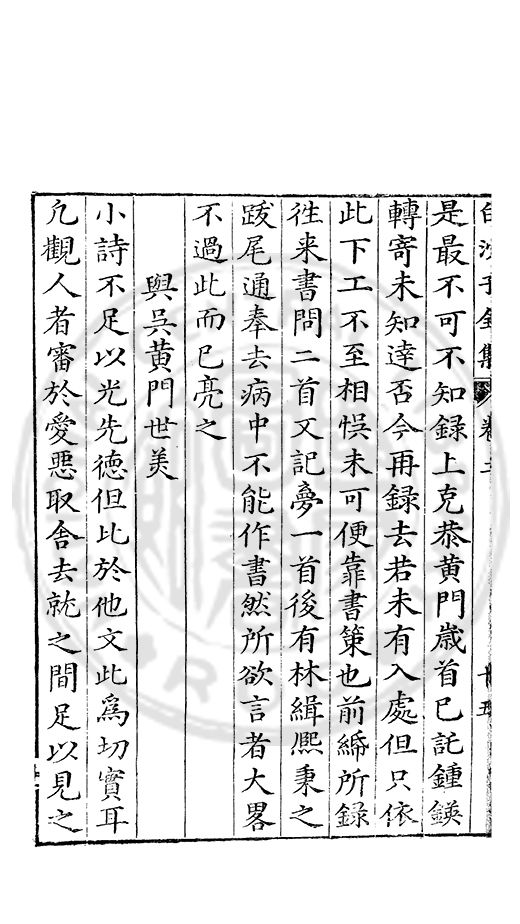 白沙子全集 卷
是最不可不知錄上克恭黃門歲首已託鍾鍈
轉寄未知達否今再錄去若未有入處但只依
此下工不至相悞未可便靠書策也前紙所錄
徃来書問二首又記夢一首後有林緝熙秉之
跋尾通奉去病中不能作書然所欲言者大畧
不過此而已亮之
與吴黃門世美
小詩不足以光先德但比於他文此為切實耳
凢觀人者審於愛惡取舍去就之間足以見之